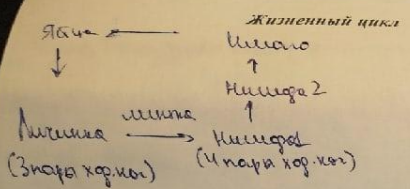 Жизненный цикл
Яйца ← Имаго
Нимфа 2
Личинка линька → Нимфа 1
(3 пары ход. ног) (4 пары ход. ног)